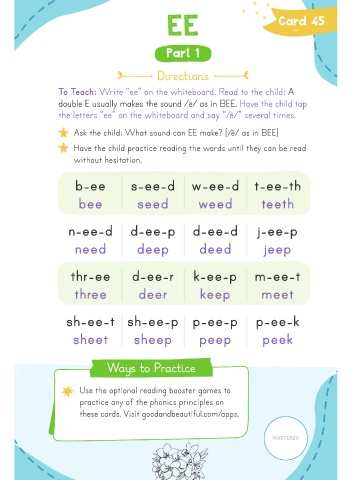 EE
Card 45
Part 1
Directions
To Teach: Write "ee" on the whiteboard. Read to the child: A
double E usually makes the sound /ē/ as in BEE. Have the child tap
the letters "ee" on the whiteboard and say "/ē/" several times.
Ask the child: What sound can EE make? [/ē/ as in BEE]
Have the child practice reading the words until they can be read
without hesitation.
b-ee s-ee-d w-ee-d t-ee-th
bee seed weed teeth
n-ee-d d-ee-p d-ee-d j-ee-p
need deep deed jeep
thr-ee d-ee-r k-ee-p m-ee-t
three deer keep meet
sh-ee-t sh-ee-p p-ee-p p-ee-k
sheet sheep peep peek
Ways to Practice
Use the optional reading booster games to
practice any of the phonics principles on
these cards. Visit goodandbeautiful.com/apps.
MASTERED